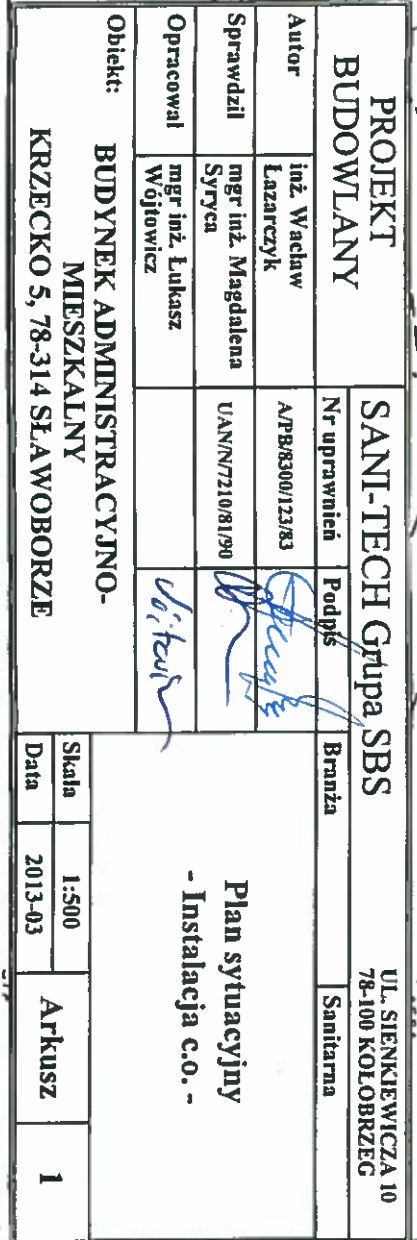 PROJEKT
BUDOWLANY
SANI-TECH Grupa SBS
UL. SIENKIEWICZA 10
78-100 KOŁOBRZEG
Nr uprawnień
Podpis
Branża
Sanitarna
Autor
inż. Wacław
Łazarczyk
A/PB/8300/123/83
Sprawdził
mgr inż. Magdalena
Syryca
UAN/N/7210/81/90
Opracował
mgr inż. Łukasz
Wójtowicz
Plan sytuacyjny
- Instalacja c.o. -
Obiekt:
BUDYNEK ADMINISTRACYJNO-
MIESZKALNY
KRZECKO 5, 78-314 SŁAWOBORZE
Skala
1:500
Data
2013-03
Arkusz
1